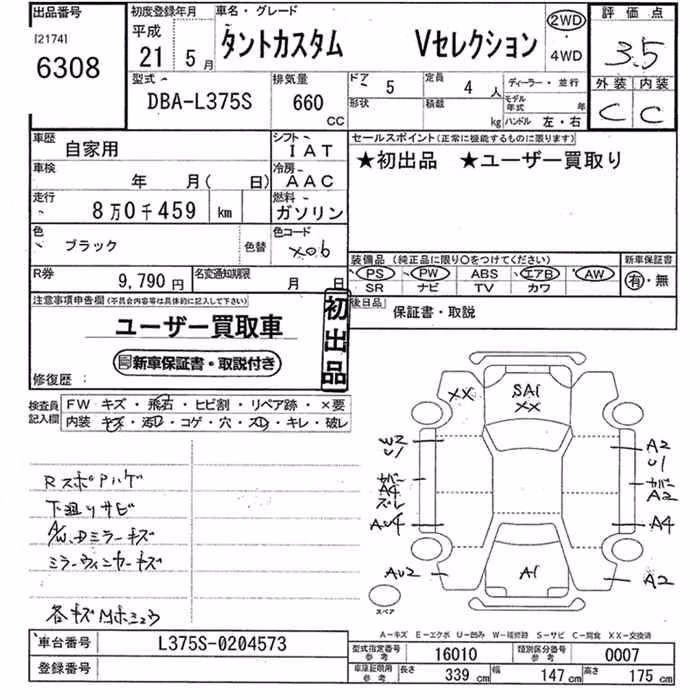 出品番号
[2174]
6308
初度登録年月
平成
21 5月
車名・グレード
タントカスタム Vセレクション
2WD
4WD
評価点
3.5
外装 内装
C C
型式
DBA-L375S
排気量
660
CC
ドア 5
定員 4 人
形状
積載 kg
ディーラー・並行
モデル年式 年
ハンドル 左・右
車歴
自家用
シフト
IAT
車検
年 月( 日)
冷房
AAC
走行
8万0千459 km
燃料
ガソリン
色
ブラック
色替
色コード
X06
R券
9,790円
名変通知期限
月 日
セールスポイント(正常に機能するものに限ります)
★初出品 ★ユーザー買取り
装備品(純正品に限り○をつけてください)
PS PW ABS エアB AW
SR ナビ TV カワ
新車保証書
有・無
後日品
保証書・取説
注意事項申告欄(不具合内容等は具体的に記入して下さい)
ユーザー買取車
新車保証書・取説付き
初出品
修復歴:
検査員
記入欄
FW キズ・飛石・ヒビ割・リペア跡・×要
内装 キズ・汚レ・コゲ・穴・スレ・キレ・破レ
RスポPハゲ
下廻リサビ
A/W、Dミラーキズ
ミラーウィンカーキズ
各キズ
XX
SA1
XX
W2
U1
A4
ズレ
AU4
AU2
A1
A2
U1
A2
A4
A2
スペア
A-キズ E-エクボ U-凹み W-補修跡 S-サビ C-腐食 XX-交換済
車台番号
L375S-0204573
登録番号
型式指定番号
参考
16010
類別区分番号
参考
0007
車庫証明用
参考
長さ 339 cm
幅 147 cm
高さ 175 cm